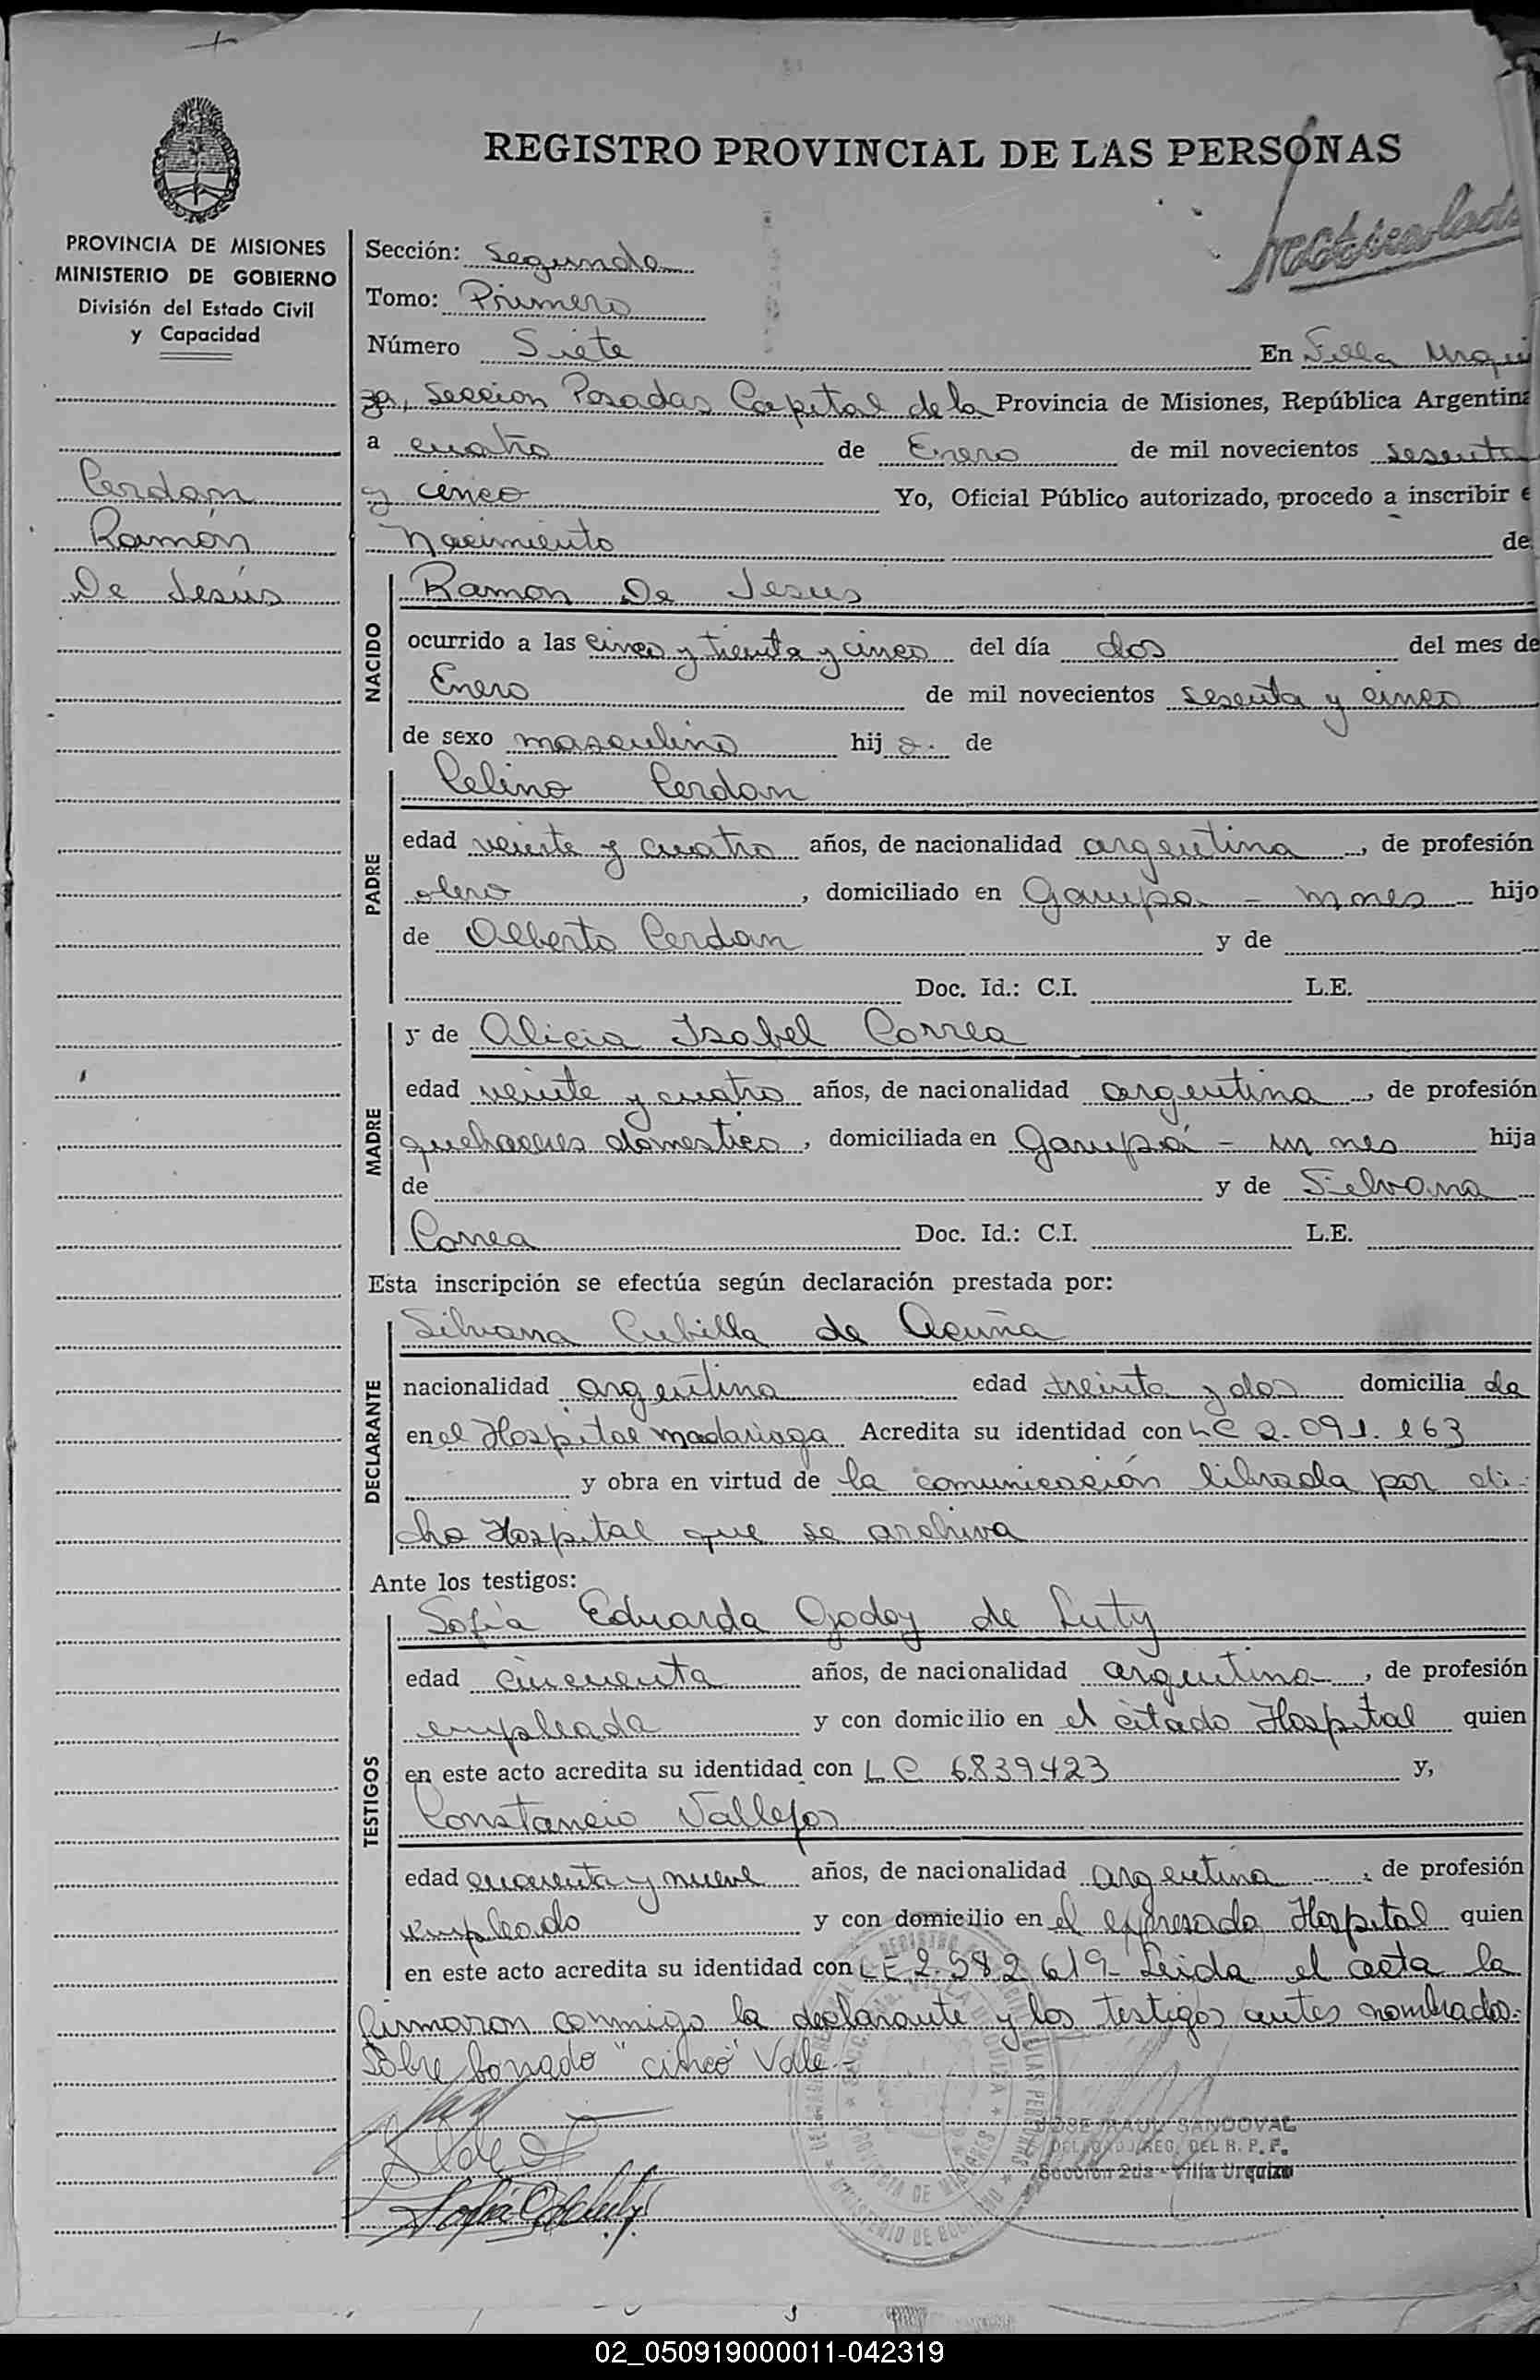 REGISTRO PROVINCIAL DE LAS PERSONAS
Matriculado
PROVINCIA DE MISIONES
MINISTERIO DE GOBIERNO
División del Estado Civil
y Capacidad
Cerdán
Ramón
De Jesús
Sección: Segunda
Tomo: Primero
Número Siete En Villa Urqui
za, Seccion Posadas Capital de la Provincia de Misiones, República Argentina
a cuatro de Enero de mil novecientos sesenta
y cinco Yo, Oficial Público autorizado, procedo a inscribir e
Nacimiento de
NACIDO
Ramon De Jesus
ocurrido a las cinco y treinta y cinco del día dos del mes de
Enero de mil novecientos sesenta y cinco
de sexo masculino hij o. de
PADRE
Celino Cerdan
edad veinte y cuatro años, de nacionalidad argentina, de profesión
obrero, domiciliado en Garupa - Mnes hijo
de Alberto Cerdan y de
Doc. Id.: C.I. L.E.
MADRE
y de Alicia Isabel Correa
edad veinte y cuatro años, de nacionalidad argentina, de profesión
quehaceres domestico, domiciliada en Garupá - Mnes hija
de y de Silvana
Correa Doc. Id.: C.I. L.E.
Esta inscripción se efectúa según declaración prestada por:
DECLARANTE
Silvana Cubilla de Acuña
nacionalidad argentina edad treinta y dos domicilia da
en el Hospital Madariaga Acredita su identidad con LC 2.091.163
y obra en virtud de la comunicación librada por di-
cho Hospital que se archiva
Ante los testigos:
TESTIGOS
Sofía Eduarda Godoy de Luty
edad cincuenta años, de nacionalidad argentina, de profesión
empleada y con domicilio en el citado Hospital quien
en este acto acredita su identidad con L C 6839423 y,
Constancio Vallejos
edad cuarenta y nueve años, de nacionalidad argentina, de profesión
empleado y con domicilio en el expresado Hospital quien
en este acto acredita su identidad con LE 2.582.619- Leida el acta la
firmaron conmigo la declarante y los testigos antes nombrados.
Sobre borrado "cinco" Vale.-
JOSE RAUL SANDOVAL
DELEGADO REG. DEL R. P. P.
Sección 2da - Villa Urquiza
02_050919000011-042319